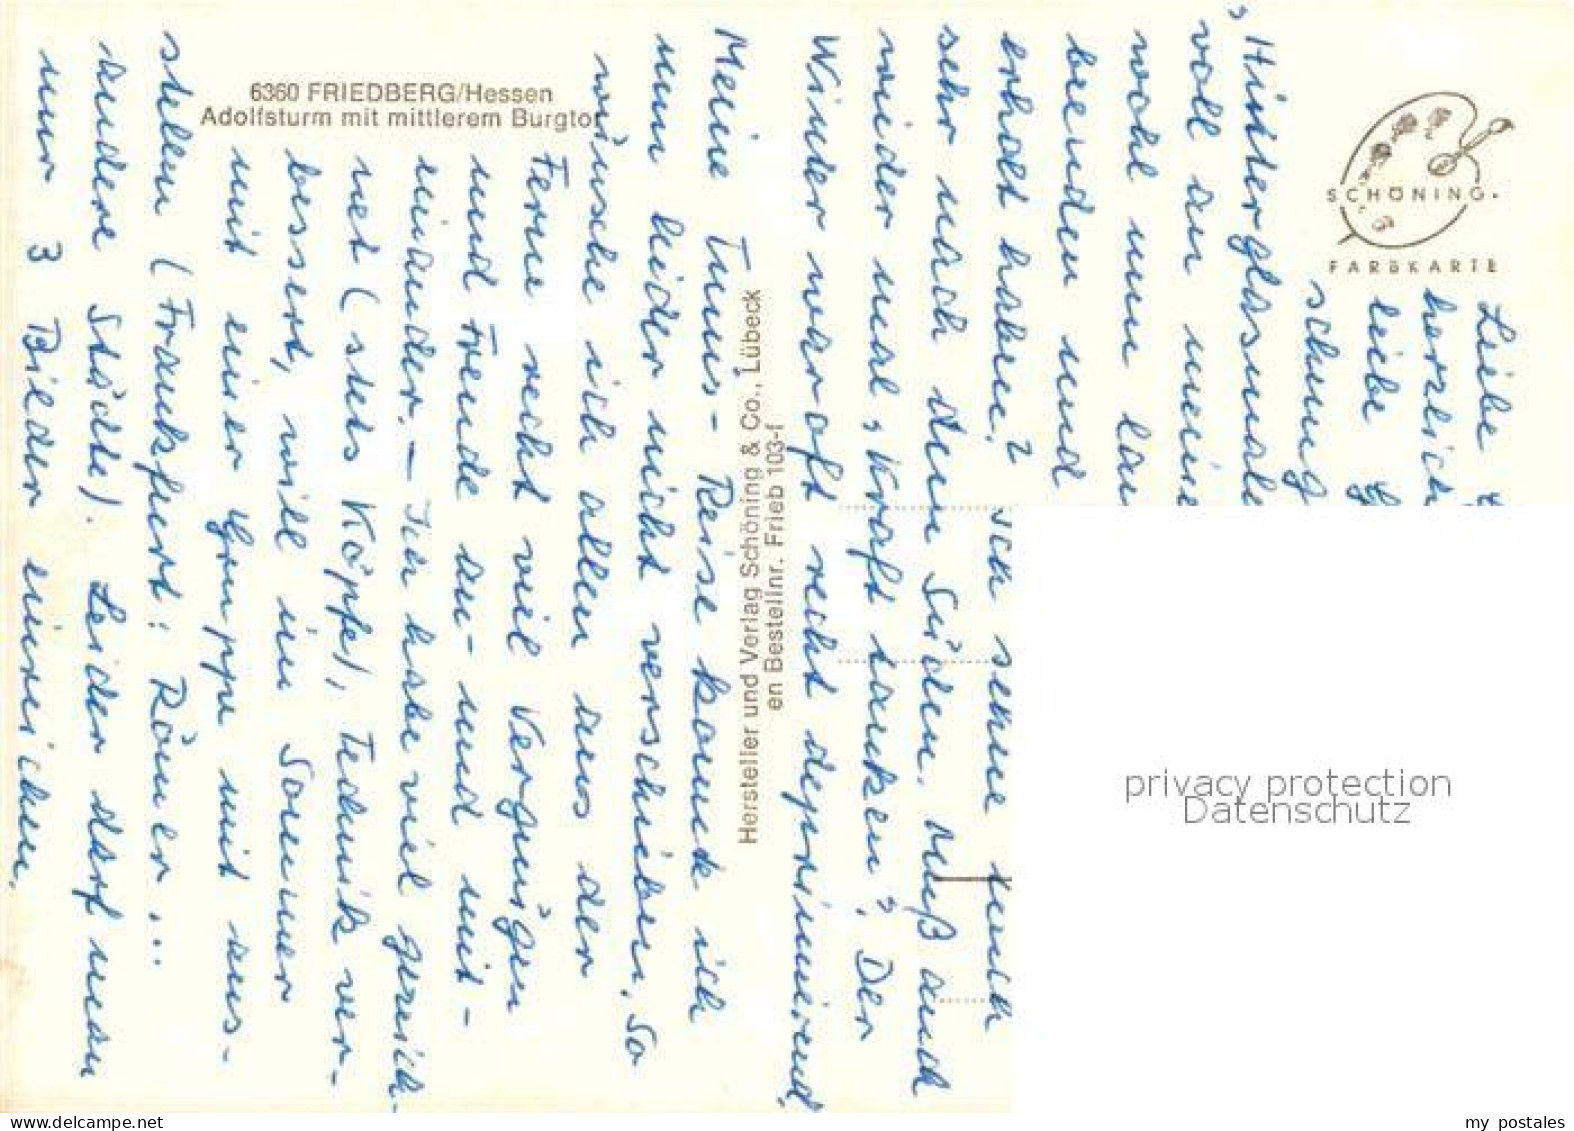 6360 FRIEDBERG/Hessen
Adolfsturm mit mittlerem Burgtor
SCHÖNING
FARBKARTE
Hersteller und Verlag Schöning & Co., Lübeck
en Bestellnr. Frieb 103-I
Liebe
herzlich
liebe
schung
"Hinterglasmale
voll an meine
wohl nun lau
beenden und
erholt haben?
ich sehne mich
sehr nach dem Süden, muß auch
wieder mal „Kraft tanken". Der
Winter war oft recht deprimierend.
Meine Tunis-Reise konnte ich
nun leider nicht verschieben. So
wünsche ich allen aus der
Ferne recht viel Vergnügen
und Freude an- und mit-
einander. – Ich habe viel gezeich-
net (stets Köpfe), Technik ver-
bessert, will im Sommer
mit einer Gruppe mit aus-
stellen (Frankfurt: Römer...
andere Städte). Leider darf man
nur 3 Bilder einreichen.
privacy protection
Datenschutz
my postales